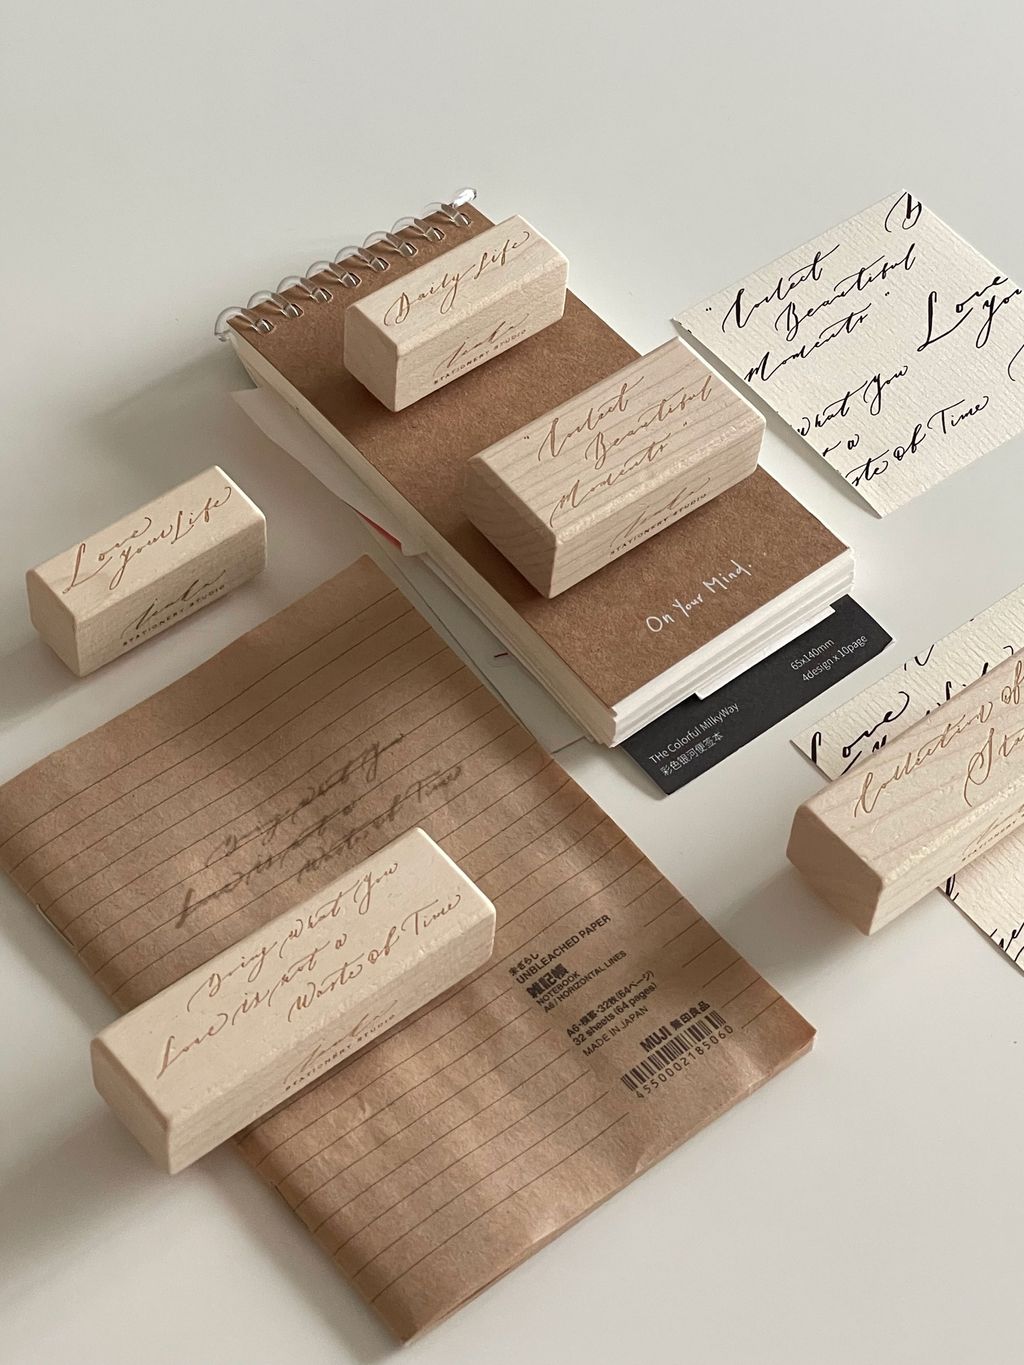 Daily Life
STATIONERY STUDIO
"Collect
Beautiful
Moments"
STATIONERY STUDIO
On Your Mind.
65x140mm
4design x 10page
THe Colorful MilkyWay
彩色银河便签本
Love
your Life
STATIONERY STUDIO
"Collect
Beautiful
Moments"
Love
you
what You
ste of Time
Love
Collection of
Doing what You
Love is not a
Waste of Time
Doing what You
Love is not a
Waste of Time
STATIONERY STUDIO
未ざらし
UNBLEACHED PAPER
雑記帳
NOTEBOOK
A6 / HORIZONTAL LINES
A6・横罫・32枚(64ページ)
32 sheets (64 pages)
MADE IN JAPAN
MUJI 無印良品
4550002185060